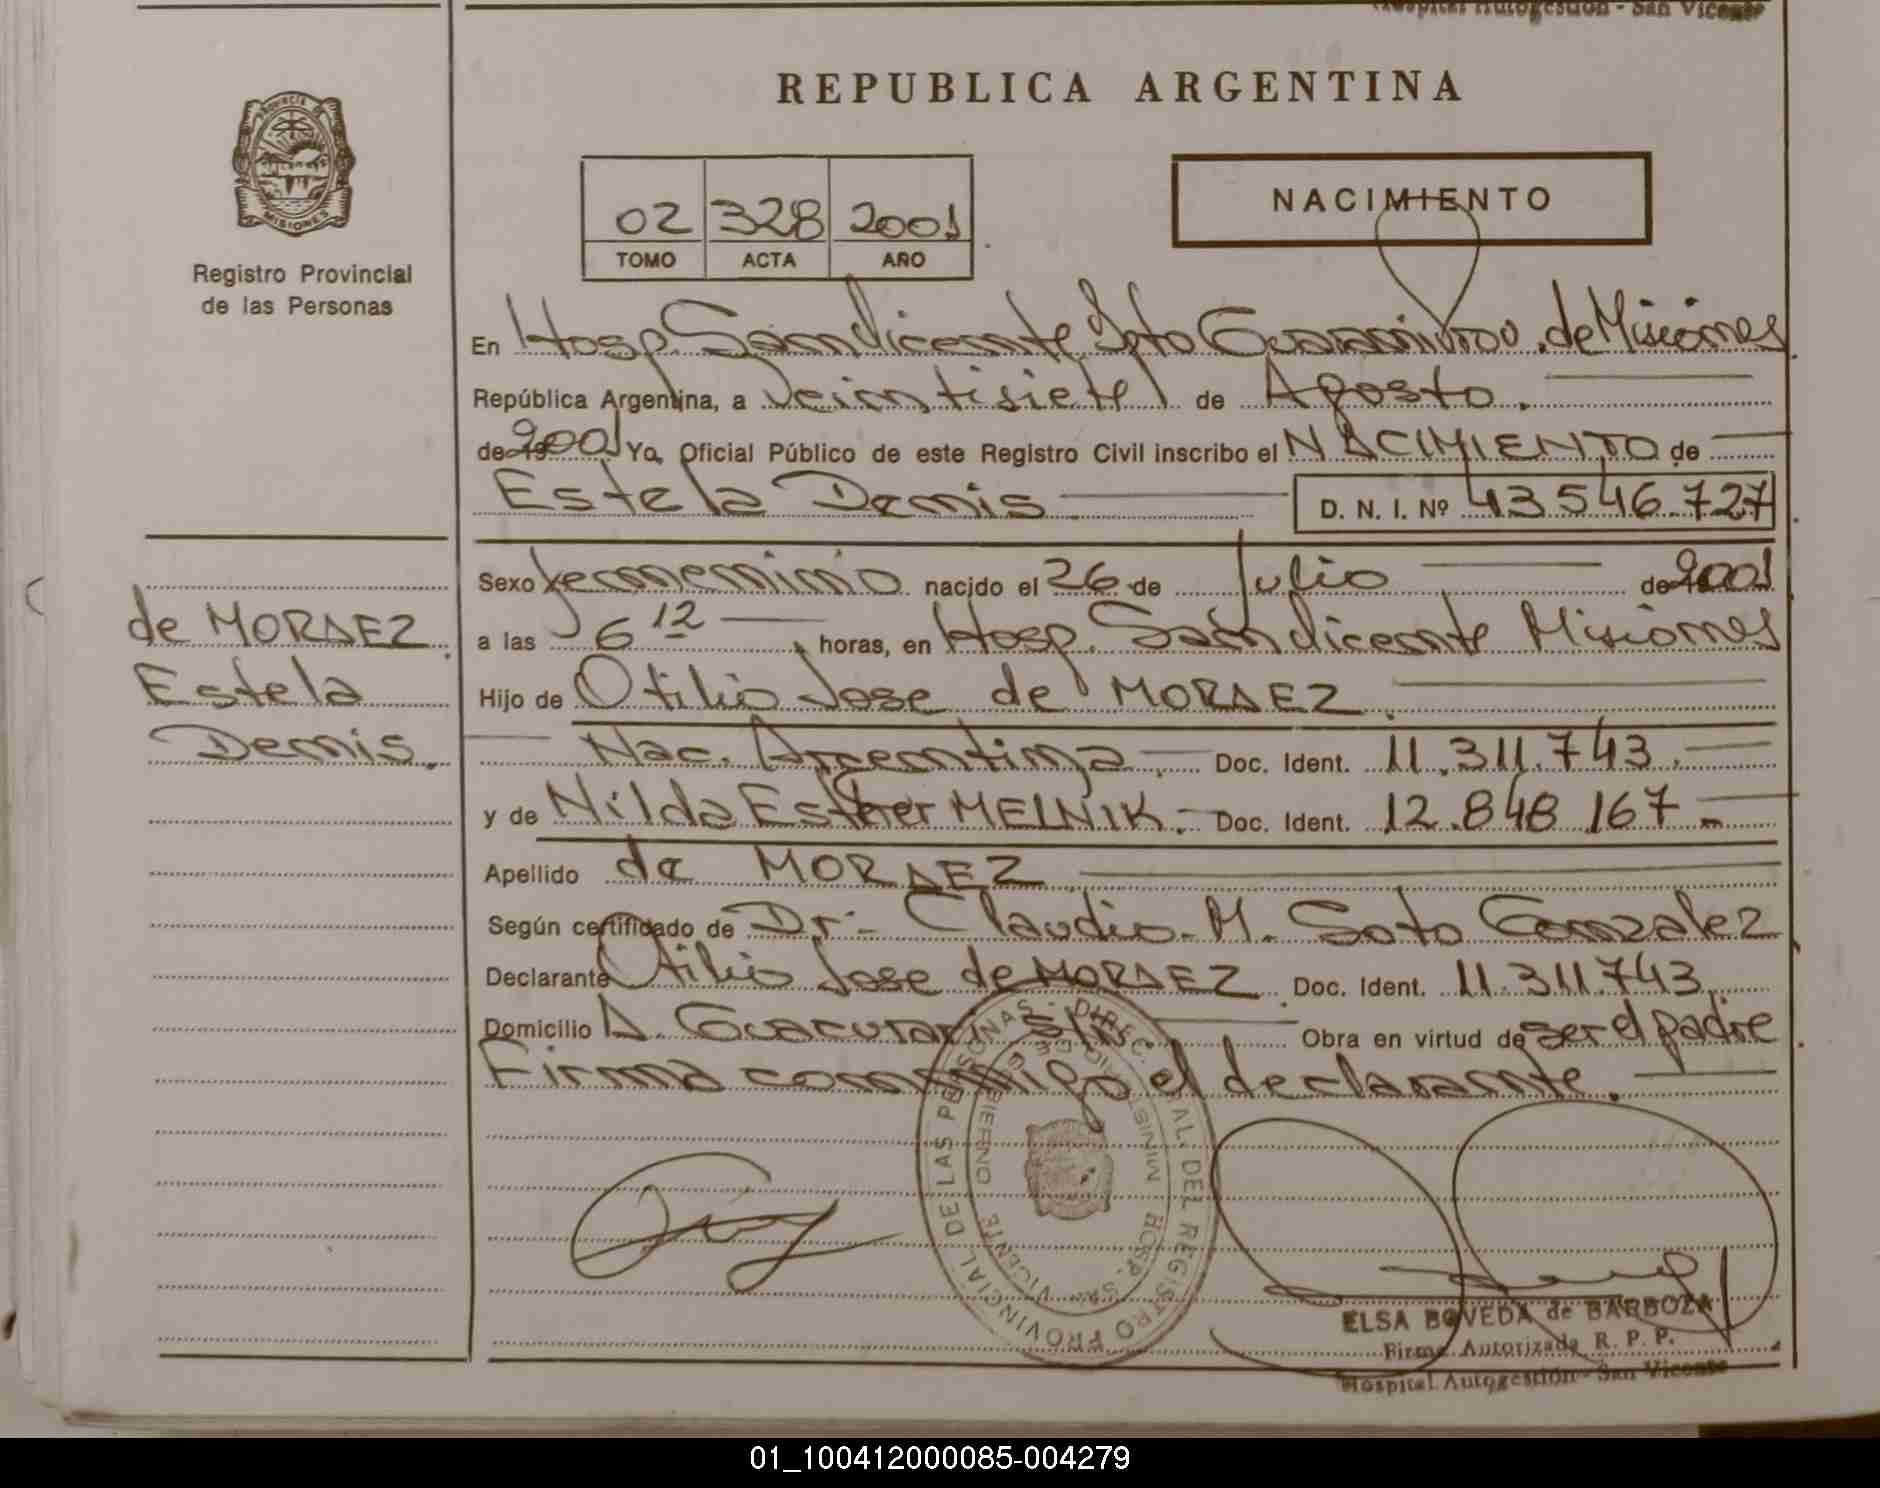 Hospital Autogestión - San Vicente
REPUBLICA ARGENTINA
PROVINCIA DE
MISIONES
Registro Provincial
de las Personas
02 328 2001
TOMO ACTA AÑO
NACIMIENTO
En Hosp. San Vicente Dpto Guaraní Prov. de Misiones
República Argentina, a veintisiete de Agosto.
de 19 2001 Yo, Oficial Público de este Registro Civil inscribo el NACIMIENTO de
Estela Denis D. N. I. Nº 43546.727
Sexo femenino nacido el 26 de Julio de 2001
a las 6 12 horas, en Hosp. San Vicente Misiones
Hijo de Otilio Jose de MORAEZ.
Nac. Argentina. Doc. Ident. 11.311.743.
y de Nilda Esther MELNIK. Doc. Ident. 12.848 167.
Apellido de MORAEZ
Según certificado de Dr. Claudio M. Soto Gonzalez
Declarante Otilio Jose de MORAEZ Doc. Ident. 11.311.743
Domicilio A. Guacurari S/N. Obra en virtud de ser el padre
Firma conmigo el declarante.
de MORAEZ
Estela
Denis.
DIREC. GRAL. DEL REGISTRO PROVINCIAL DE LAS PERSONAS
MINISTERIO DE GOBIERNO
HOSP. SAN VICENTE
ELSA BOVEDA de BARBOZA
Firma Autorizada R. P. P.
Hospital Autogestión - San Vicente
01_100412000085-004279